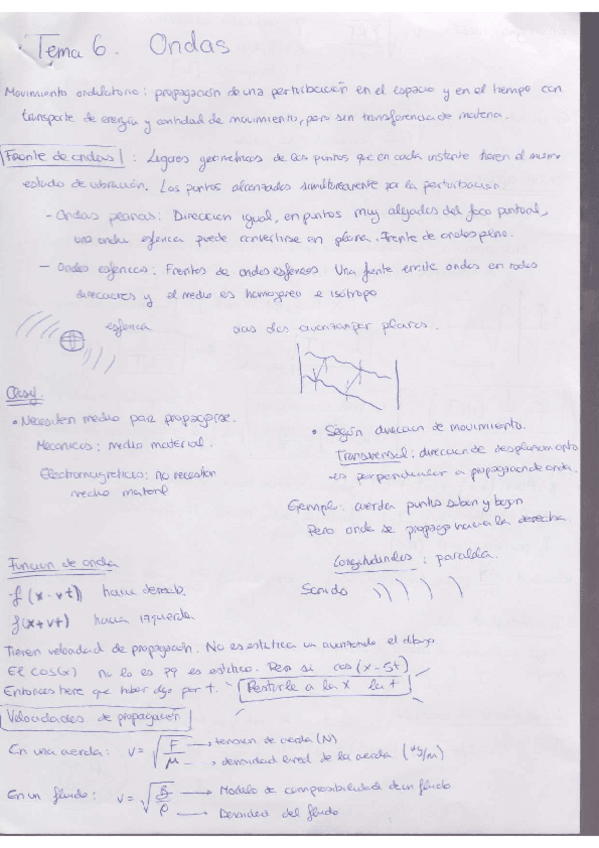 Tema 6. Ondas
Movimiento ondulatorio: propagación de una perturbación en el espacio y en el tiempo con
transporte de energía y cantidad de movimiento, pero sin transferencia de materia.
Frente de ondas: Lugares geométricos de los puntos que en cada instante tienen el mismo
estado de vibración. Los puntos alcanzados simultáneamente por la perturbación
- Ondas planas: Dirección igual, en puntos muy alejados del foco puntual,
una onda esférica puede convertirse en plana. Frente de ondas plano.
- Ondas esféricas: Frentes de ondas esféricos. Una fuente emite ondas en todas
direcciones y el medio es homogéneo e isótropo
esférica
olas del mar planas.
Clasif.
• Necesiten medio para propagarse.
Mecánicas: medio material.
Electromagnéticas: no necesitan
medio material
• Según dirección de movimiento.
Transversal: dirección de desplazamiento
es perpendicular a propagación de onda.
Ejemplo: cuerda puntos suben y bajan
Pero onda se propaga hacia la derecha
Longitudinales: paralela.
Sonido
Función de onda
f(x - vt) hacia derech.
f(x+vt) hacia izquierda
Tienen velocidad de propagación. No es estática va avanzando el dibujo
El cos(x) no lo es pq es estático. Pero si cos(x-5t)
Entonces tiene que haber algo por t. Restarle a la x la t
Velocidades de propagación
En una cuerda: v = √(F/μ) → tensión de cuerda (N)
→ densidad lineal de la cuerda (kg/m)
En un fluido: v = √(B/ρ) → Módulo de compresibilidad de un fluido
→ Densidad del fluido